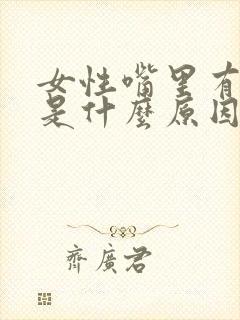 女性嘴里有
是什麼原因
齊廣君